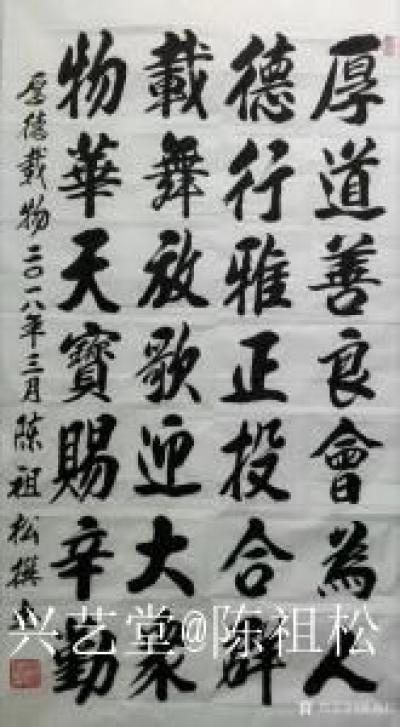 厚道善良會為人
德行雅正投合群
載舞放歌迎大衆
物華天寶賜辛勤
厚德載物二〇一八年三月陳祖松撰
兴艺堂@陈祖松